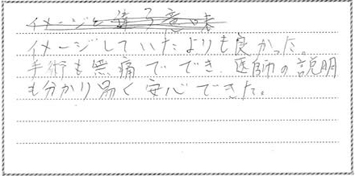 イメージしていたよりも良かった。
手術も無痛ででき、医師の説明
も分かり易く安心できた。